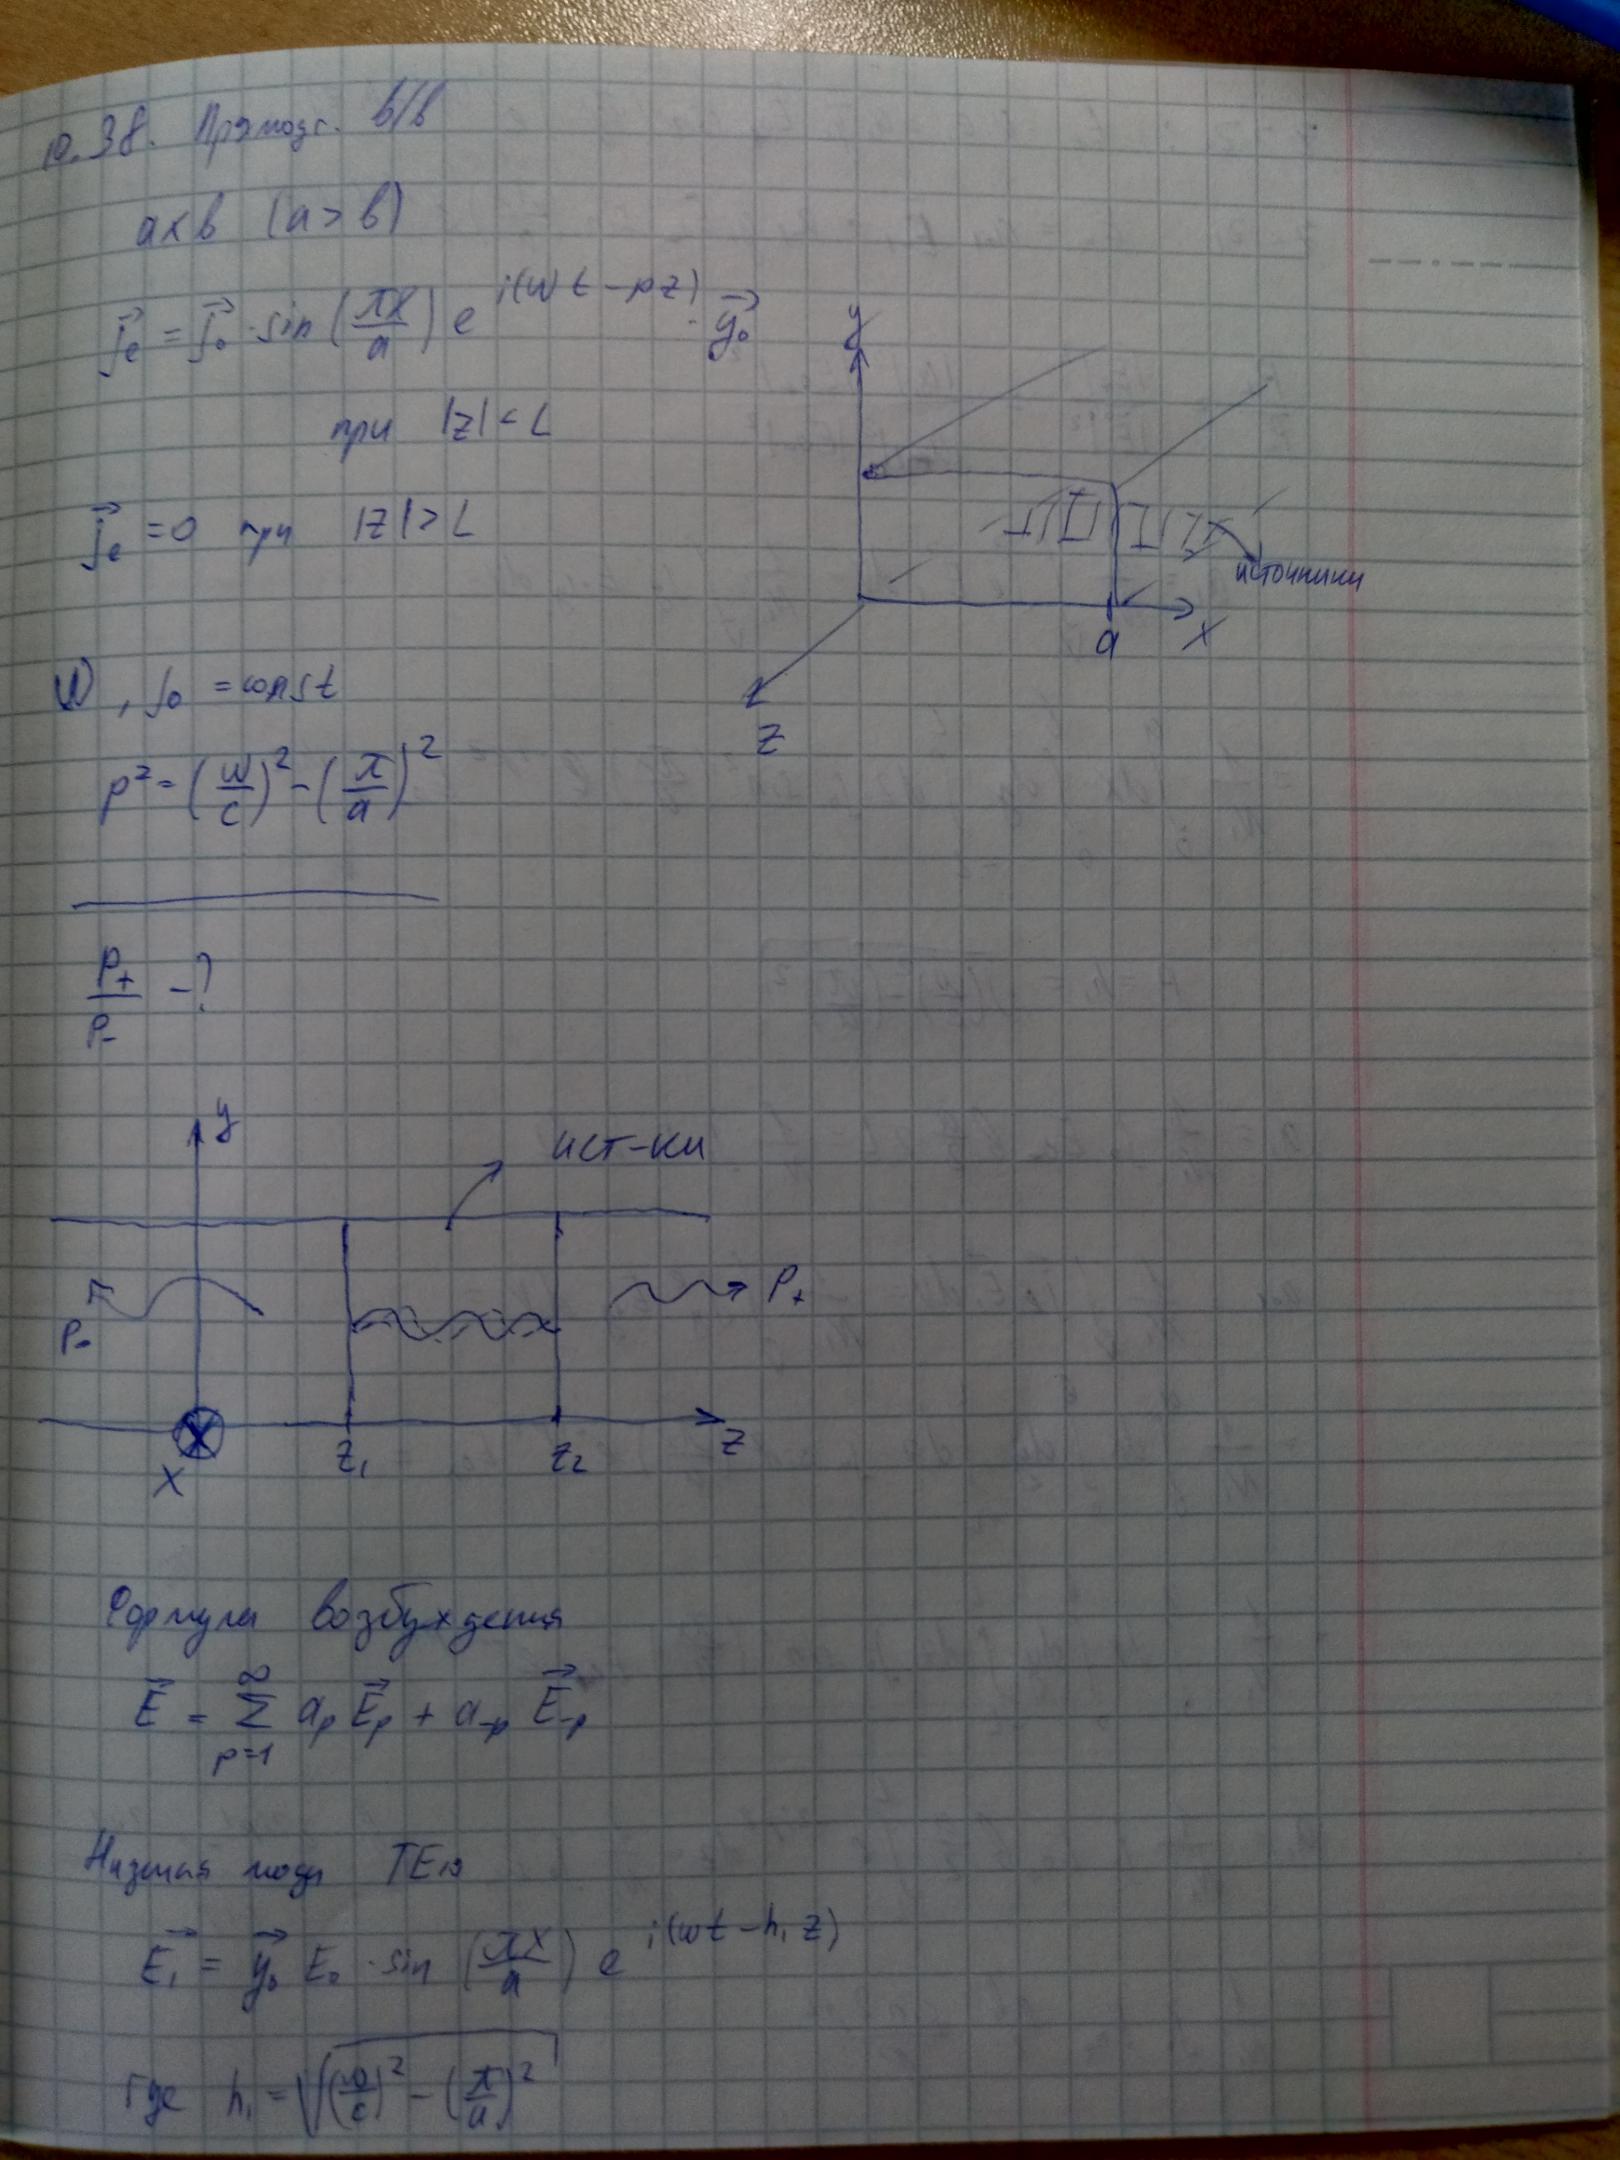 10.38. Прямоуг. в/в
a×b (a>b)
j⃗e = j⃗0 · sin(πx/a) e^{i(ωt−pz)} · y⃗0
при |z| < L
j⃗e = 0 при |z| > L
y
источники
a
x
z
ω, j0 = const
p² = (ω/c)² − (π/a)²
P+/P− − ?
y
ист-ки
P−
P+
x
z1
z2
z
Формула возбуждения
E⃗ = ∑_{p=1}^{∞} a_p E⃗_p + a_{−p} E⃗_{−p}
Низшая мода TE10
E⃗1 = y⃗0 E0 · sin(πx/a) e^{i(ωt−h1z)}
где h1 = √((ω/c)² − (π/a)²)